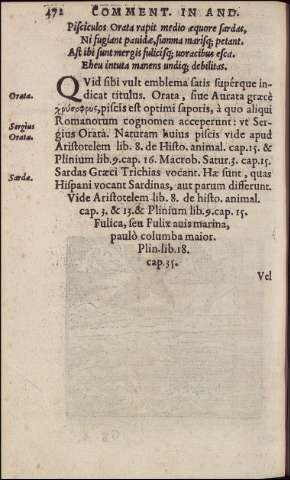 472 COMMENT. IN AND.
Pisciculos Orata rapit medio æquore sardas,
Ni fugiant pauidæ, summa marisq; petant.
Ast ibi sunt mergis fulicisq; voracibus esca.
Eheu intuta manens undiq; debilitas.
QVid sibi vult emblema satis supérque in-
dicat titulus. Orata, siue Aurata græcè
Orata.
χρύσοφρυς, piscis est optimi saporis, à quo aliqui
Romanorum cognomen acceperunt: vt Ser-
Sergius
gius Orata. Naturam huius piscis vide apud
Orata.
Aristotelem lib. 8. de Histo. animal. cap. 15. &
Plinium lib. 9. cap. 16. Macrob. Satur. 3. cap. 15.
Sardas Græci Trichias vocant. Hæ sunt, quas
Sardæ.
Hispani vocant Sardinas, aut parum differunt.
Vide Aristotelem lib. 8. de histo. animal.
cap. 3. & 13. & Plinium lib. 9. cap. 15.
Fulica, seu Fulix auis marina,
paulò columba maior.
Plin. lib. 18.
cap. 35.
Vel